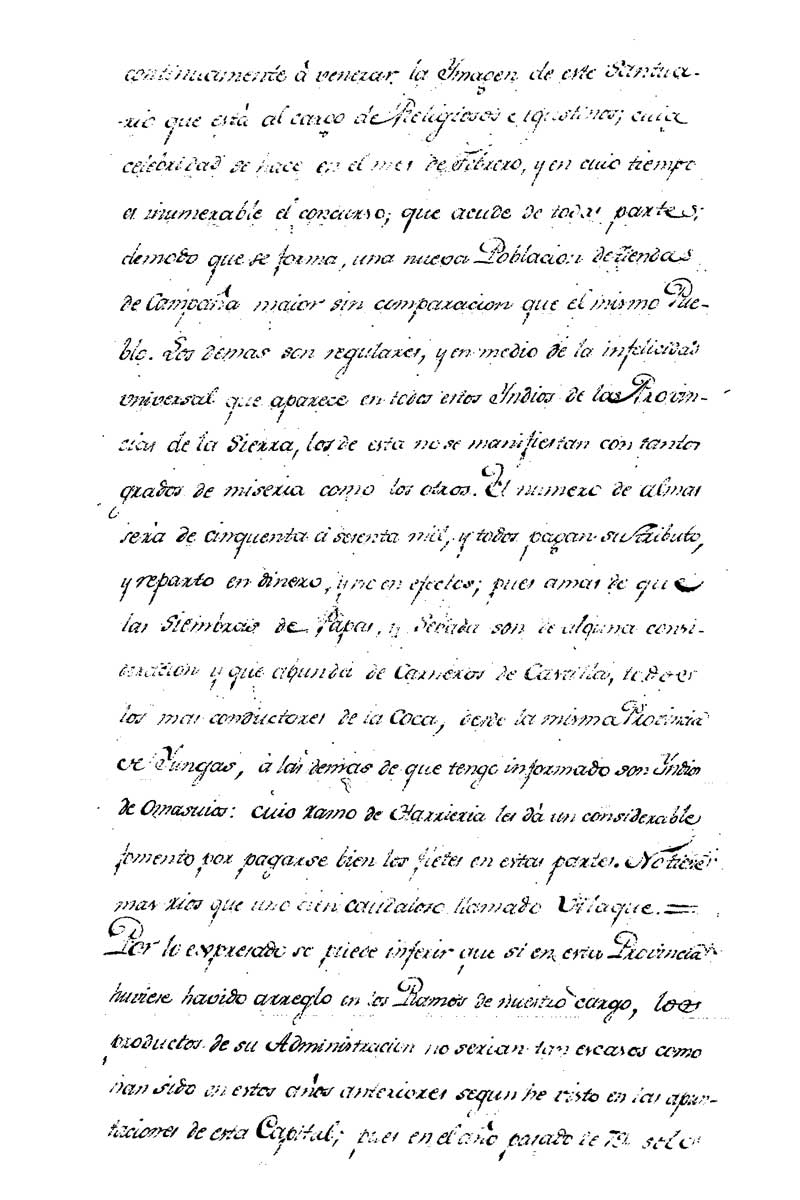 continuamente à venerar la Ymagen de este Santua-
rio que está al cargo de Religiosos Agustinos; cuia
celebridad se hace en el mes de Febrero, y en cuio tiempo
es inumerable el concurso; que acude de todas partes;
demodo que se forma, una nueva Poblacion de tiendas
de Campaña maior sin comparacion que el mismo Pue-
blo. Los demas son regulares, y en medio de la infelicidad
universal que aparece en todos estos Yndios de las Provin-
cias de la Sierra, los de esta no se manifiestan con tantos
grados de miseria como los otros. El numero de almas
será de cinquenta á sesenta mil, y todos pagan su Tributo,
y reparto en dinero, y no en efectos; pues amas de que
las Siembras de Papas, y Sebada son de alguna consi-
deracion y que abunda de Carneros de Castilla, todo es
los mas conductores de la Coca, desde la misma Provincia
de Yungas, à las demas de que tengo informado son Yndios
de Omasuios: cuio ramo de Harrieria les dà un considerable
fomento por pagarse bien los fletes en estas partes. No tiene
mas rios que uno bien caudaloso llamado Vilaque. =
Por lo expresado se puede inferir que si en esta Provincia
huviese havido arreglo en los Ramos de nuestro cargo, los
productos de su Administracion no serian tan escasos como
han sido en estos años anteriores segun he visto en las apun-
taciones de esta Capital; pues en el año pasado de 79 solo